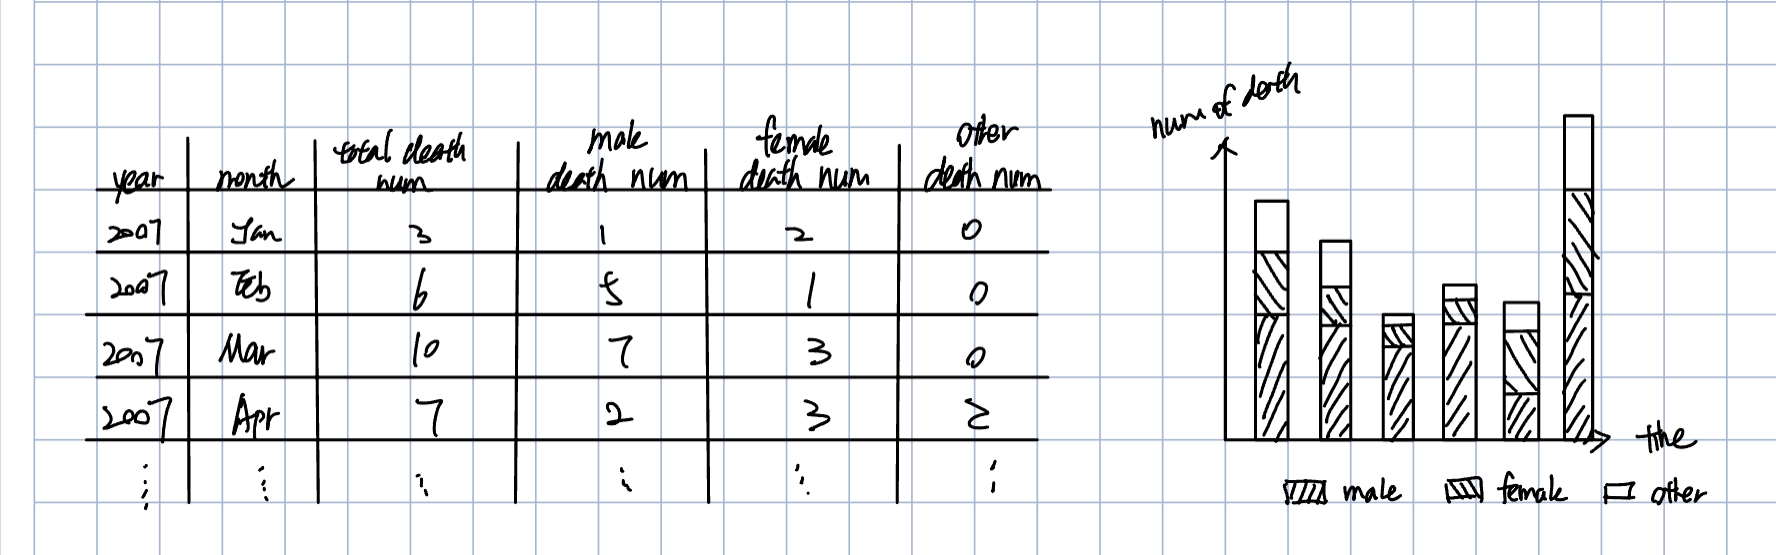 year month total death num male death num female death num other death num
2007 Jan 3 1 2 0
2007 Feb 6 5 1 0
2007 Mar 10 7 3 0
2007 Apr 7 2 3 2
num of death
time
male female other